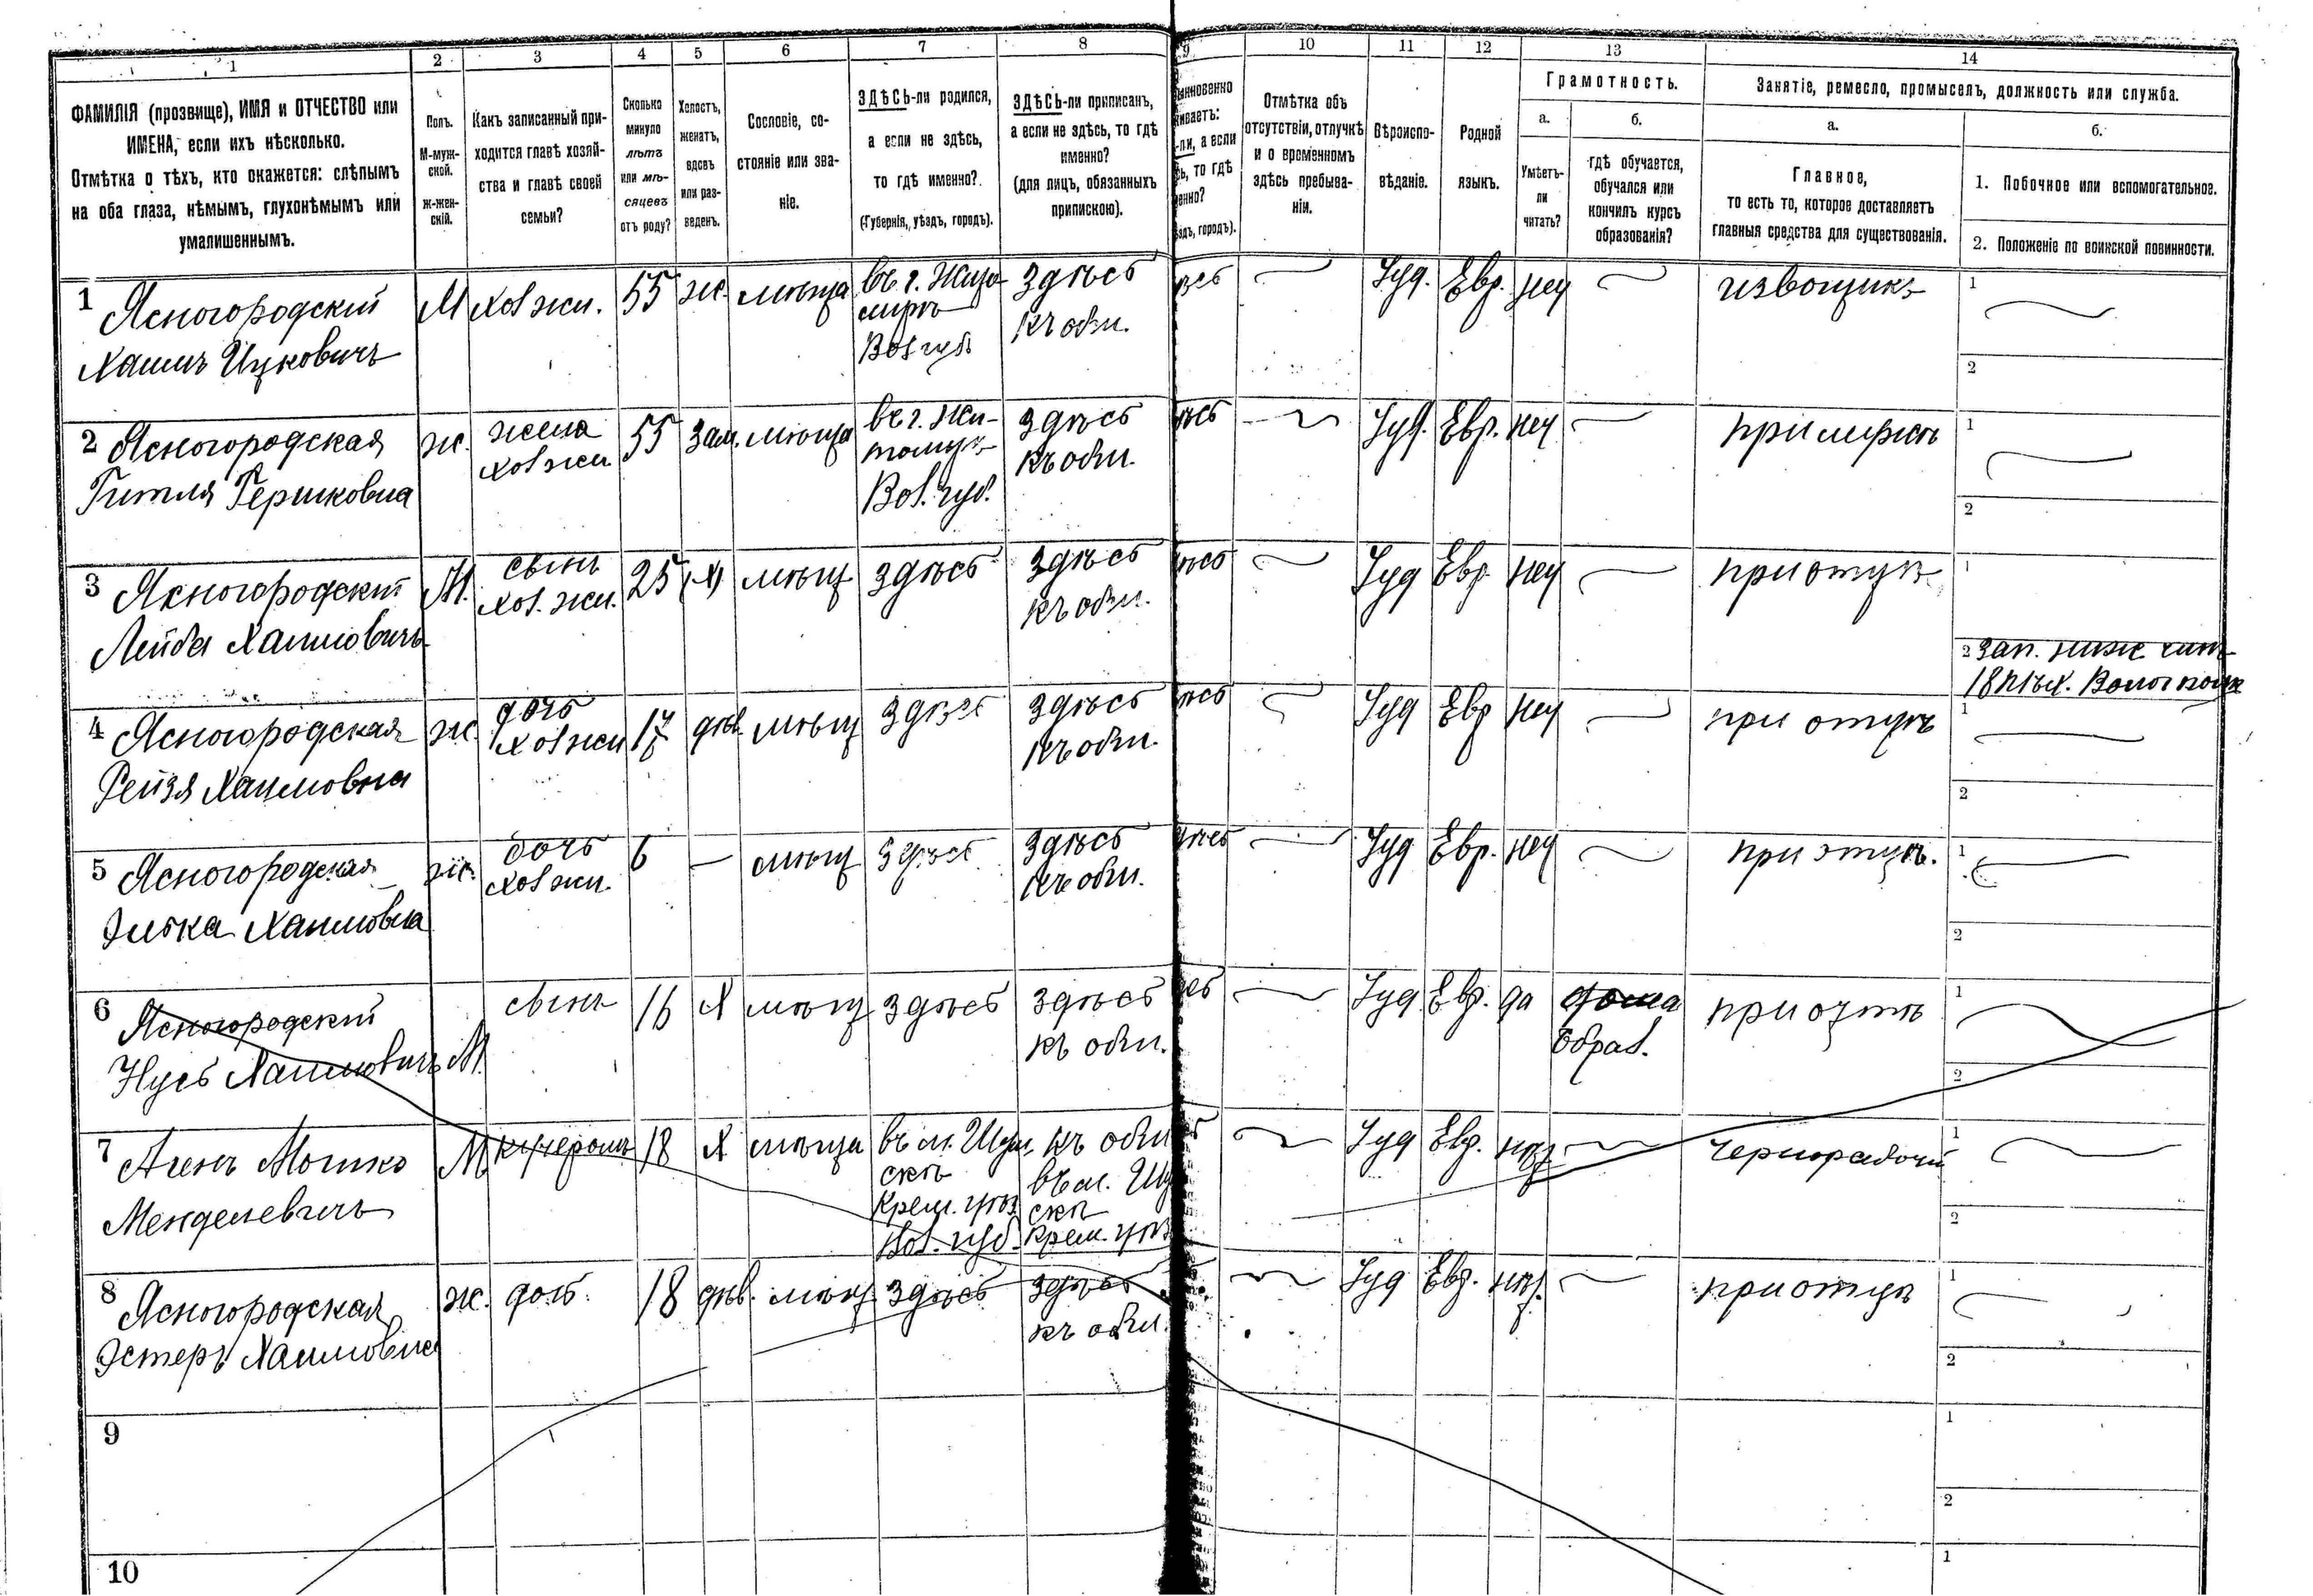 1 2 3 4 5 6 7 8 9 10 11 12 13 14
ФАМИЛІЯ (прозвище), ИМЯ и ОТЧЕСТВО или
ИМЕНА, если ихъ нѣсколько.
Отмѣтка о тѣхъ, кто окажется: слѣпымъ
на оба глаза, нѣмымъ, глухонѣмымъ или
умалишеннымъ.
Полъ.
М-муж-
ской.
Ж-жен-
скій.
Какъ записанный при-
ходится главѣ хозяй-
ства и главѣ своей
семьи?
Сколько
минуло
лѣтъ
или мѣ-
сяцевъ
отъ роду?
Холостъ,
женатъ,
вдовъ
или раз-
веденъ.
Сословіе, со-
стояніе или зва-
ніе.
ЗДѢСЬ-ли родился,
а если не здѣсь,
то гдѣ именно?
(Губернія, уѣздъ, городъ).
ЗДѢСЬ-ли приписанъ,
а если не здѣсь, то гдѣ
именно?
(для лицъ, обязанныхъ
припискою).
ли, а если
то гдѣ
городъ).
Отмѣтка объ
отсутствіи, отлучкѣ
и о временномъ
здѣсь пребыва-
ніи.
Вѣроиспо-
вѣданіе.
Родной
языкъ.
Грамотность.
а.
Умѣетъ-
ли
читать?
б.
гдѣ обучается,
обучался или
кончилъ курсъ
образованія?
Занятіе, ремесло, промыселъ, должность или служба.
а.
Главное,
то есть то, которое доставляетъ
главныя средства для существованія.
б.
1. Побочное или вспомогательное.
2. Положеніе по воинской повинности.
1 Ясногородскій
Хаимъ Ицковичъ
М хоз жи. 55 ж. мѣща
въ г. Жито-
миръ
Вол губ
здѣсь
къ общ.
Іуд. Евр. неу извощикъ
1
2
2 Ясногородская
Гитля Гершковна
ж. жена
хоз жи 55 зам. мѣща
въ г. Жи-
томиръ
Вол. губ.
здѣсь
къ общ.
Іуд. Евр. неу при мужѣ
1
2
3 Ясногородскій
Лейба Хаимовичъ
М. сынъ
хоз. жи. 25 Х мѣщ здѣсь
здѣсь
къ общ.
Іуд Евр. неу при отцѣ
1
2 зап. ниж чин
4 Ясногородская
Рейзя Хаимовна
ж. дочь
хоз жи 17 дѣв. мѣщ здѣсь
здѣсь
къ общ.
Іуд Евр неу при отцѣ
1
2
5 Ясногородская
Элька Хаимовна
ж. дочь
хоз жи. 6 — мѣщ здѣсь
здѣсь
къ общ.
Іуд Евр. неу при отцѣ.
1
2
6 Ясногородскій
Нусь Хаимовичъ М.
сынъ 16 Х мѣщ здѣсь
здѣсь
къ общ.
Іуд. Евр. да дома
образ.
при отцѣ
1
2
7 Агенъ Мошко
Менделевичъ
М кучеромъ 18 Х мѣща
Крем. уѣз
Вол. губ.
къ общ
Крем. уѣз
Іуд Евр. чернорабочій
1
2
8 Ясногородская
Эстеръ Хаимовна
ж. дочь. 18 дѣв. мѣщ. здѣсь
здѣсь
къ общ.
Іуд Евр. при отцѣ
1
2
9
1
2
10
1